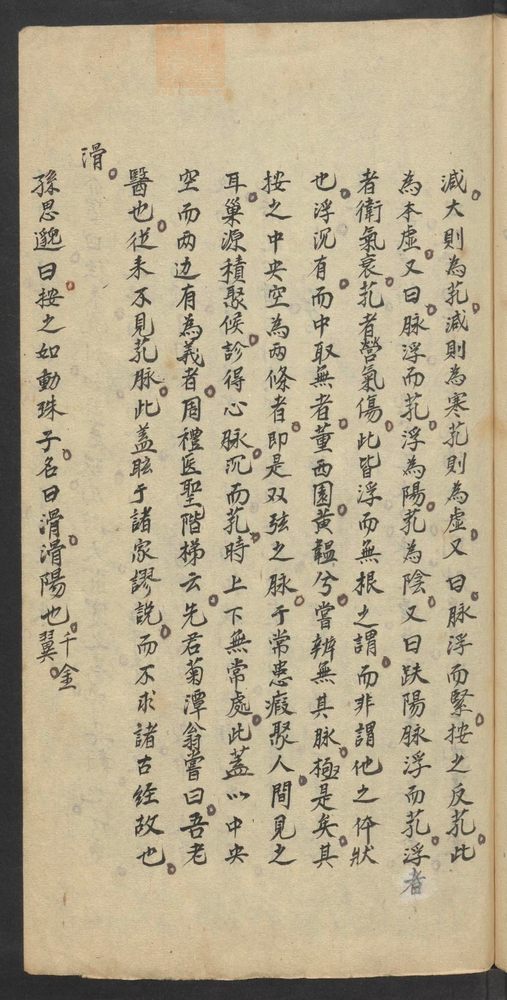 減大則為芤減則為寒芤則為虛又曰脉浮而緊按之反芤此
為本虛又曰脉浮而芤浮為陽芤為陰又曰趺陽脉浮而芤浮者
者衛氣衰芤者營氣傷此皆浮而無根之謂而非謂他之体狀
也浮沉有而中取無者董西園黄韞兮嘗辨無其脉極是矣其
按之中央空為兩條者即是双弦之脉于常患瘕聚人間見之
耳巢源積聚候診得心脉沉而芤時上下無常處此蓋以中央
空而两边有為義者周禮医聖階梯云先君菊潭翁嘗曰吾老
醫也従来不見芤脉此蓋眩于諸家謬説而不求諸古経故也
滑
孫思邈曰按之如動珠子名曰滑滑陽也千金翼